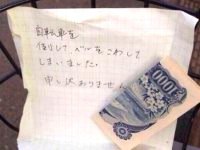 自転車を
借りして、ベルをこわして
しまいました。
申し訳ありません
1000